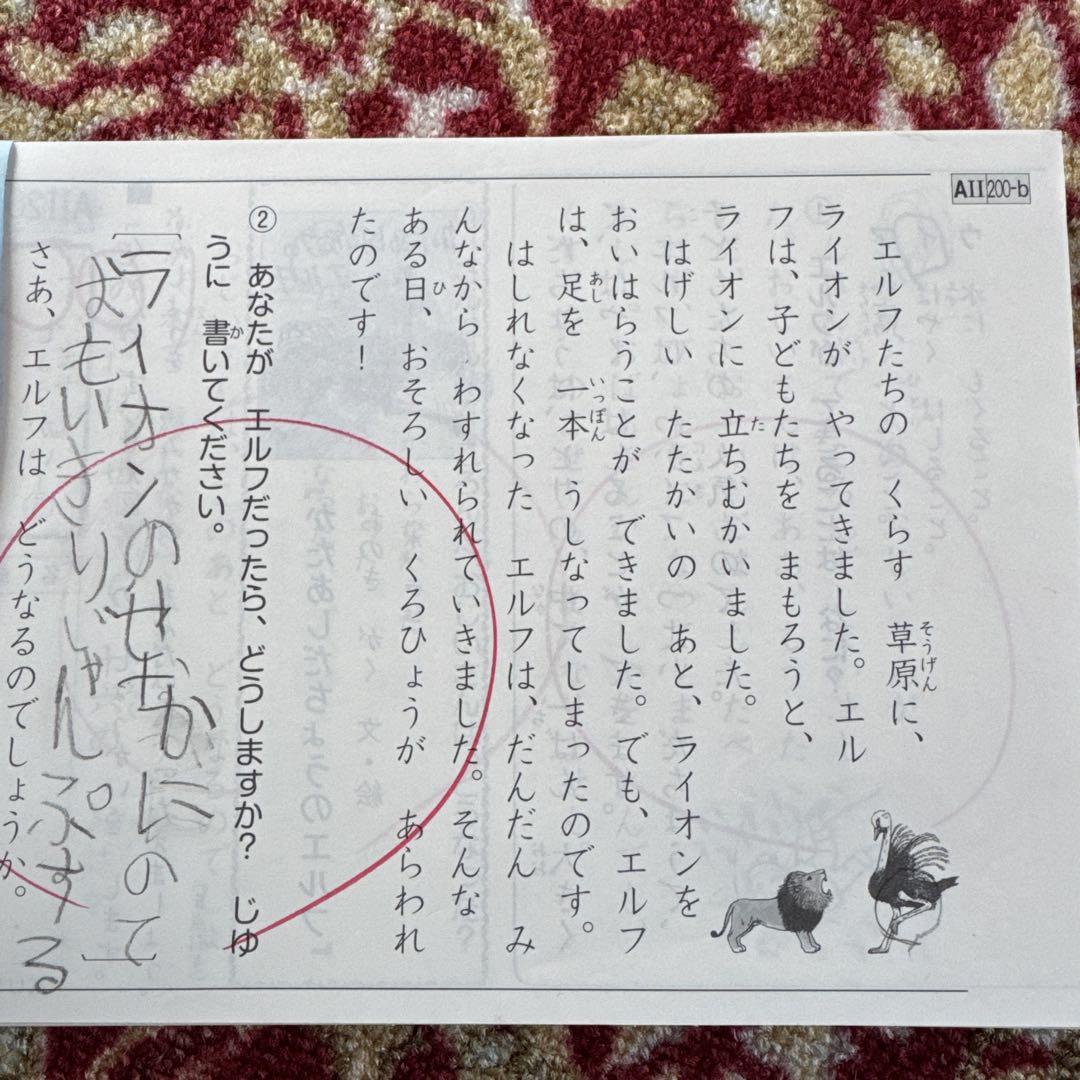 AII 200-b
エルフたちの くらす 草原に、
ライオンが やってきました。エル
フは、子どもたちを まもろうと、
ライオンに 立ちむかいました。
はげしい たたかいの あと、ライオンを
おいはらうことが できました。でも、エルフ
は、足を 一本 うしなってしまったのです。
はしれなくなった エルフは、だんだん み
んなから わすれられていきました。そんな
ある日、おそろしい くろひょうが あらわれ
たのです!
② あなたが エルフだったら、どうしますか? じゆ
うに 書いてください。
[ライオンのせなかにのて]
おもいきりじゃんぷする
さあ、エルフは どうなるのでしょうか。